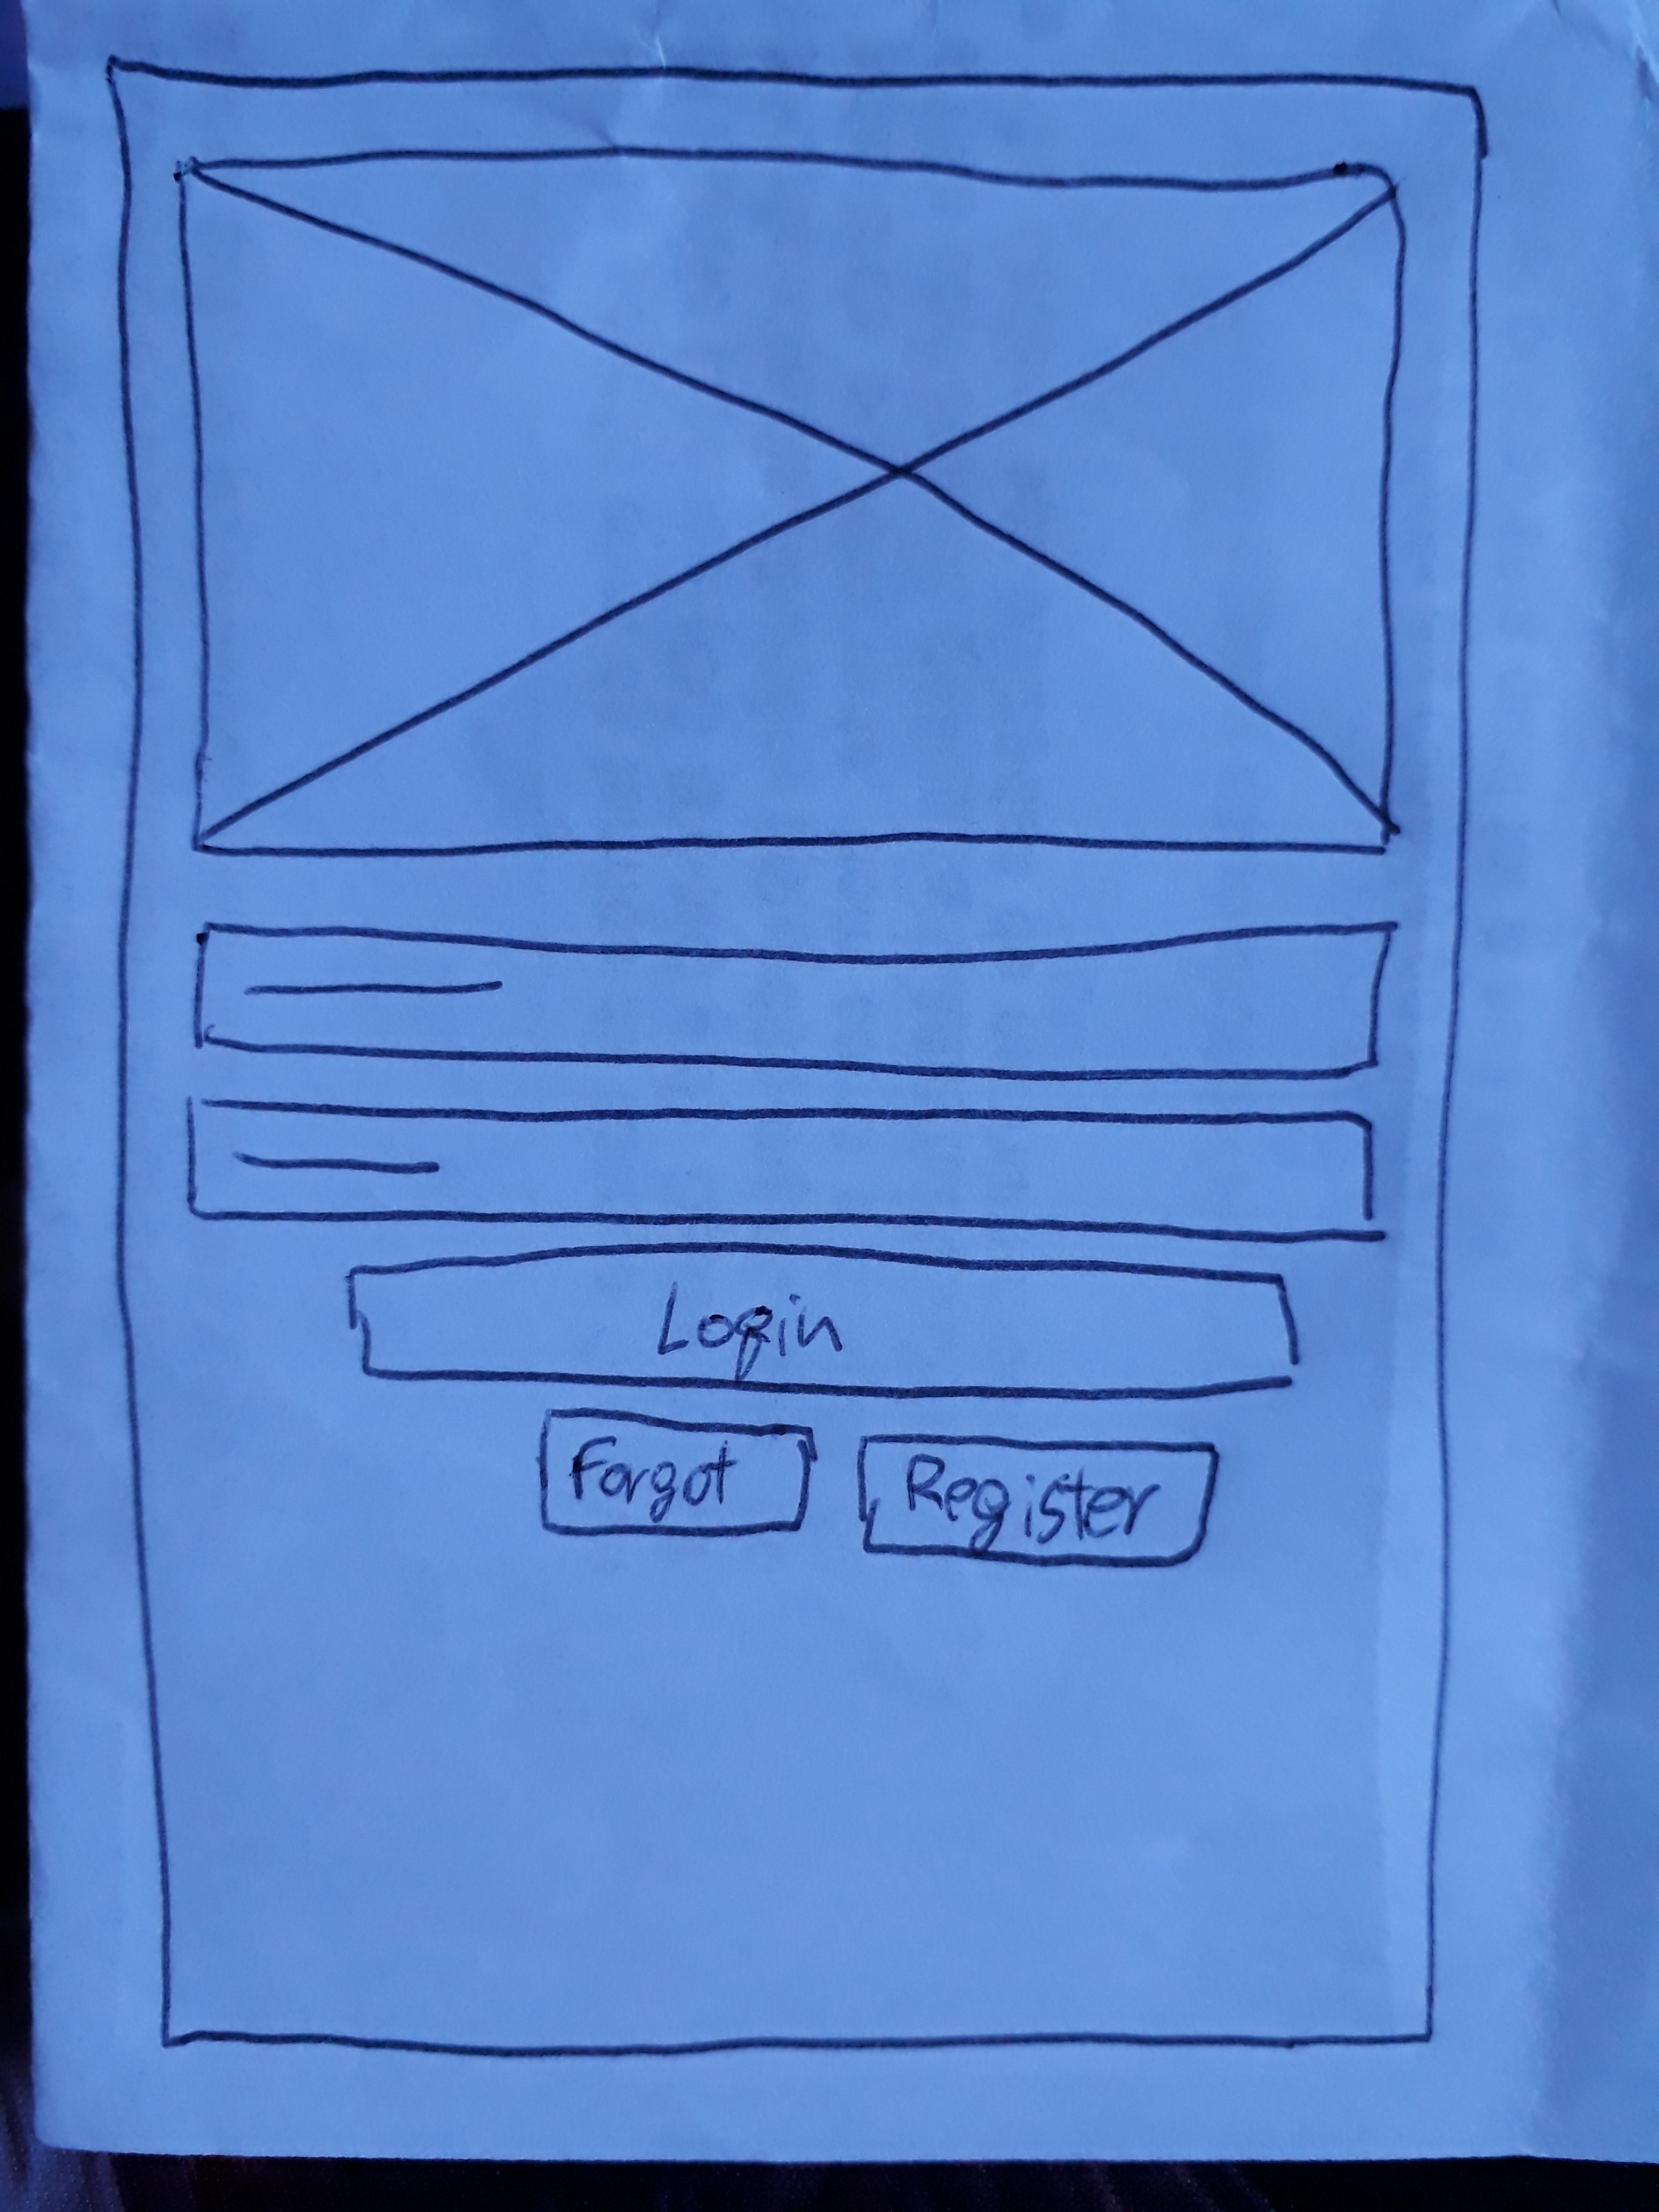 Login
Forgot Register